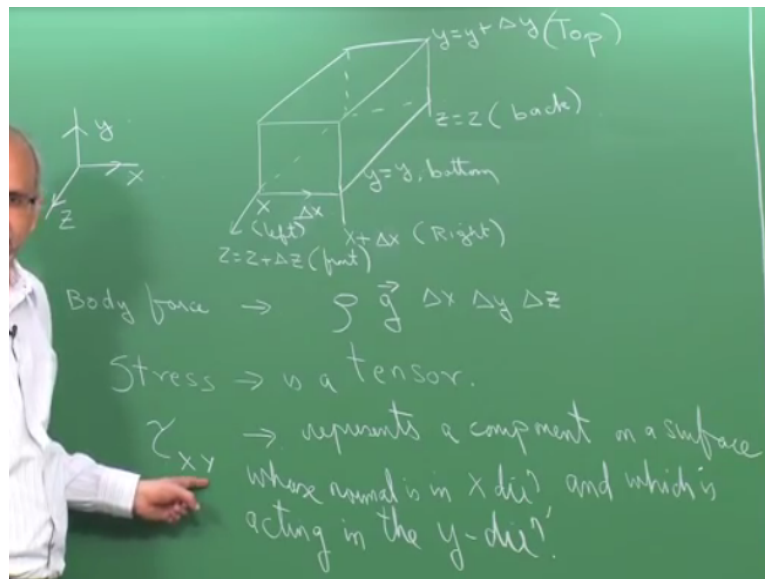 y=y+Δy(Top)
y
z=z(back)
x
y=y, bottom
z
x
Δx
(left)
x+Δx (Right)
z=z+Δz(front)
Body force → ρ g⃗ Δx Δy Δz
Stress → is a tensor.
τxy → represents a component on a surface
whose normal is in x dirⁿ and which is
acting in the y-dirⁿ.